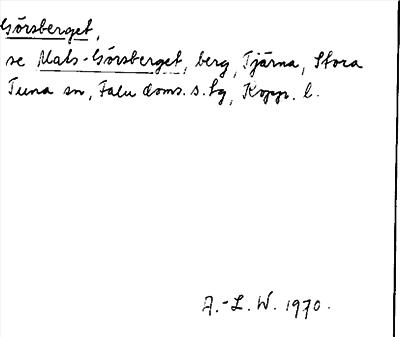 Görsberget,
se Mats-Görsberget, berg, Tjärna, Stora
Tuna sn, Falu doms. s. tg, Kopp. l.
A.-L. W. 1970.